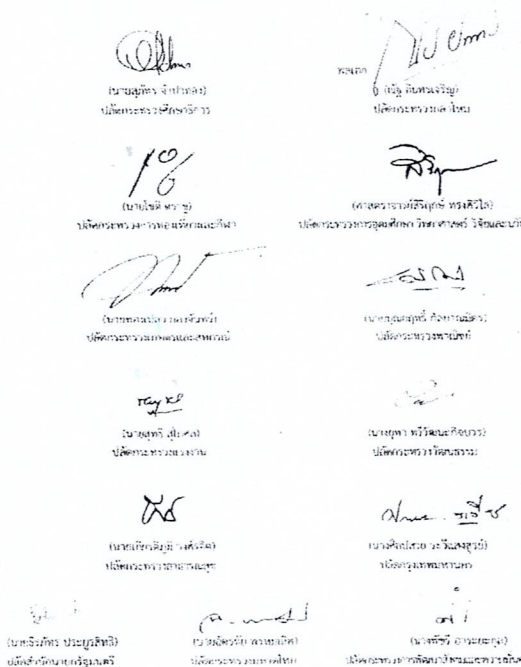 (นายสุภัทร จำปาทอง)
ปลัดกระทรวงศึกษาธิการ
พลเอก
(ณัฐ อินทรเจริญ)
ปลัดกระทรวงกลาโหม
(นายโชติ ตราชู)
ปลัดกระทรวงการท่องเที่ยวและกีฬา
(ศาสตราจารย์สิริฤกษ์ ทรงศิวิไล)
ปลัดกระทรวงการอุดมศึกษา วิทยาศาสตร์ วิจัยและนวั
(นายทองเปลว กองจันทร์)
ปลัดกระทรวงเกษตรและสหกรณ์
(นายบุณยฤทธิ์ กัลยาณมิตร)
ปลัดกระทรวงพาณิชย์
(นายสุทธิ สุโกศล)
ปลัดกระทรวงแรงงาน
(นางยุพา ทวีวัฒนะกิจบวร)
ปลัดกระทรวงวัฒนธรรม
(นายเกียรติภูมิ วงศ์รจิต)
ปลัดกระทรวงสาธารณสุข
(นางศิลปสวย ระวีแสงสูรย์)
ปลัดกรุงเทพมหานคร
(นายธีรภัทร ประยูรสิทธิ)
ปลัดสำนักนายกรัฐมนตรี
(นายฉัตรชัย พรหมเลิศ)
ปลัดกระทรวงมหาดไทย
(นางพัชรี อาระยะกุล)
ปลัดกระทรวงการพัฒนาสังคมและความมั่น